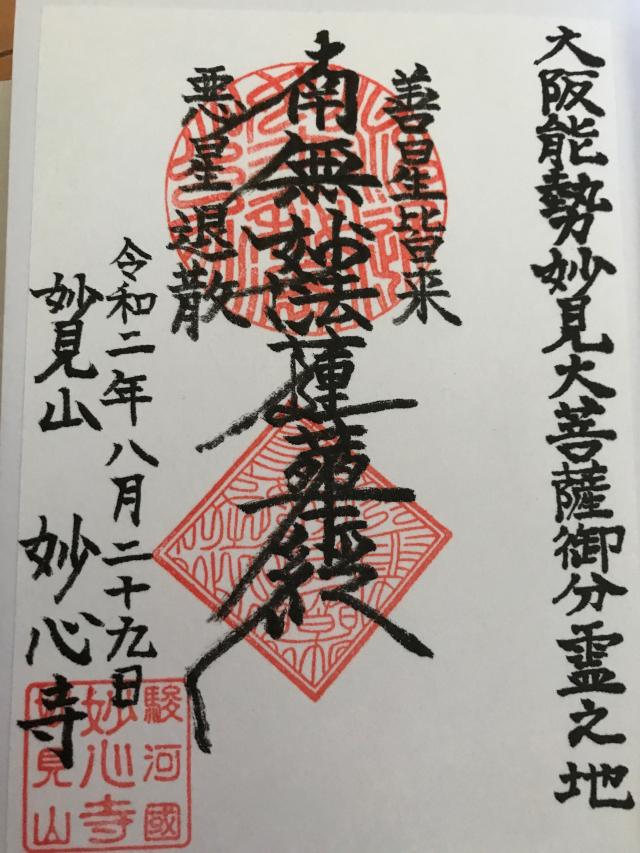 大阪能勢妙見大菩薩御分霊之地
善星皆来
南無妙法蓮華経
悪星退散
令和二年八月二十九日
妙見山 妙心寺
駿河國
妙心寺
妙見山